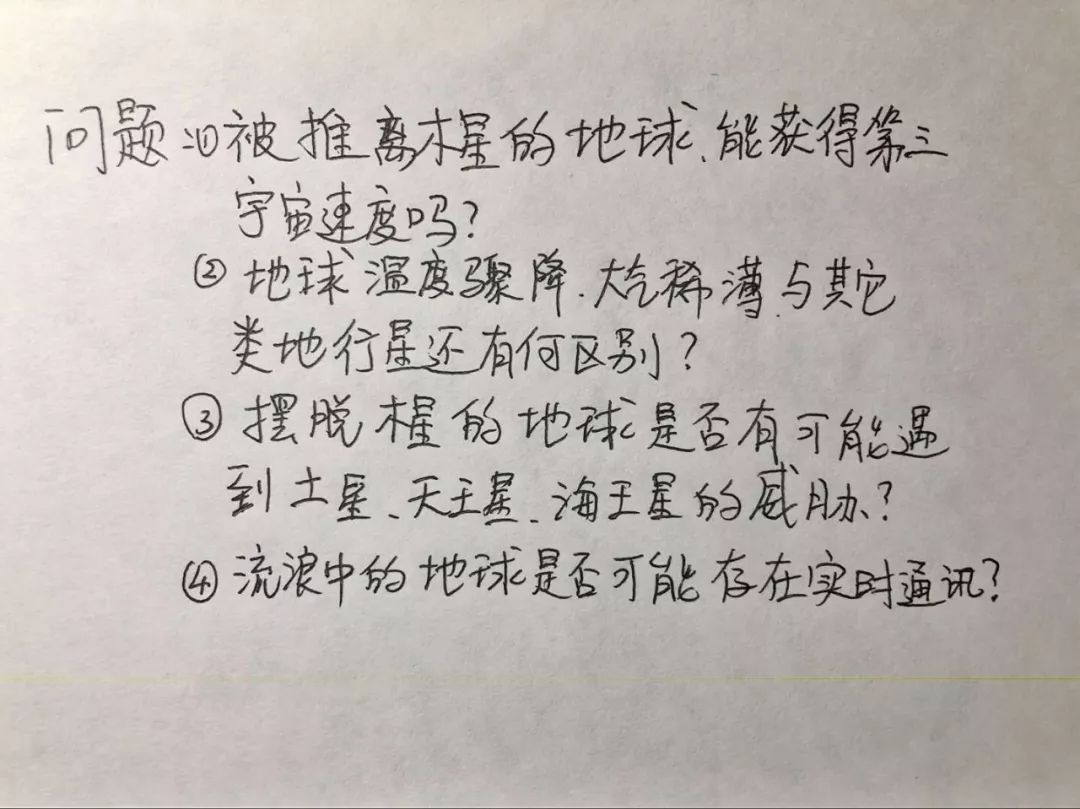 问题:①被推离木星的地球、能获得第三
宇宙速度吗?
② 地球温度骤降、大气稀薄、与其它
类地行星还有何区别?
③ 摆脱木星的地球是否有可能遇
到土星、天王星、海王星的威胁?
④ 流浪中的地球是否可能存在实时通讯?